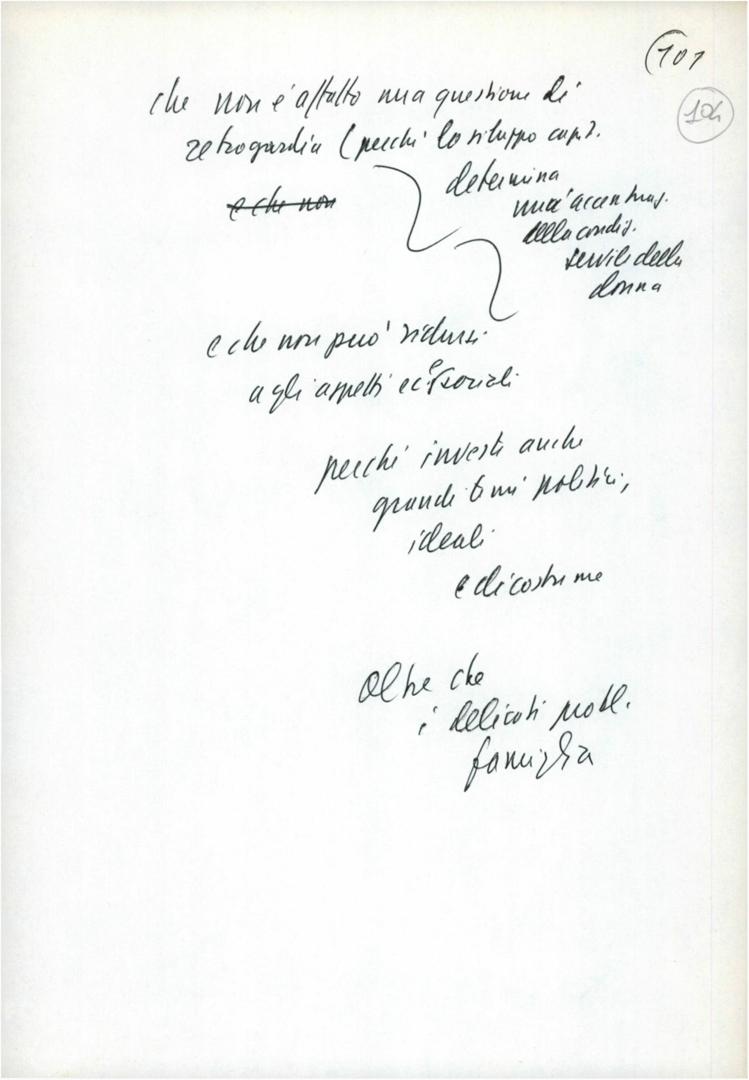 (101
104
che non è affatto una questione di
retroguardia (perché lo sviluppo cap.
determina
una accentuaz.
della condiz.
servile della
donna
e che non
e che non può ridursi
agli aspetti ec. e sociali
perché investe anche
grandi temi politici,
ideali
e di costume
Oltre che
i delicati probl.
famiglia